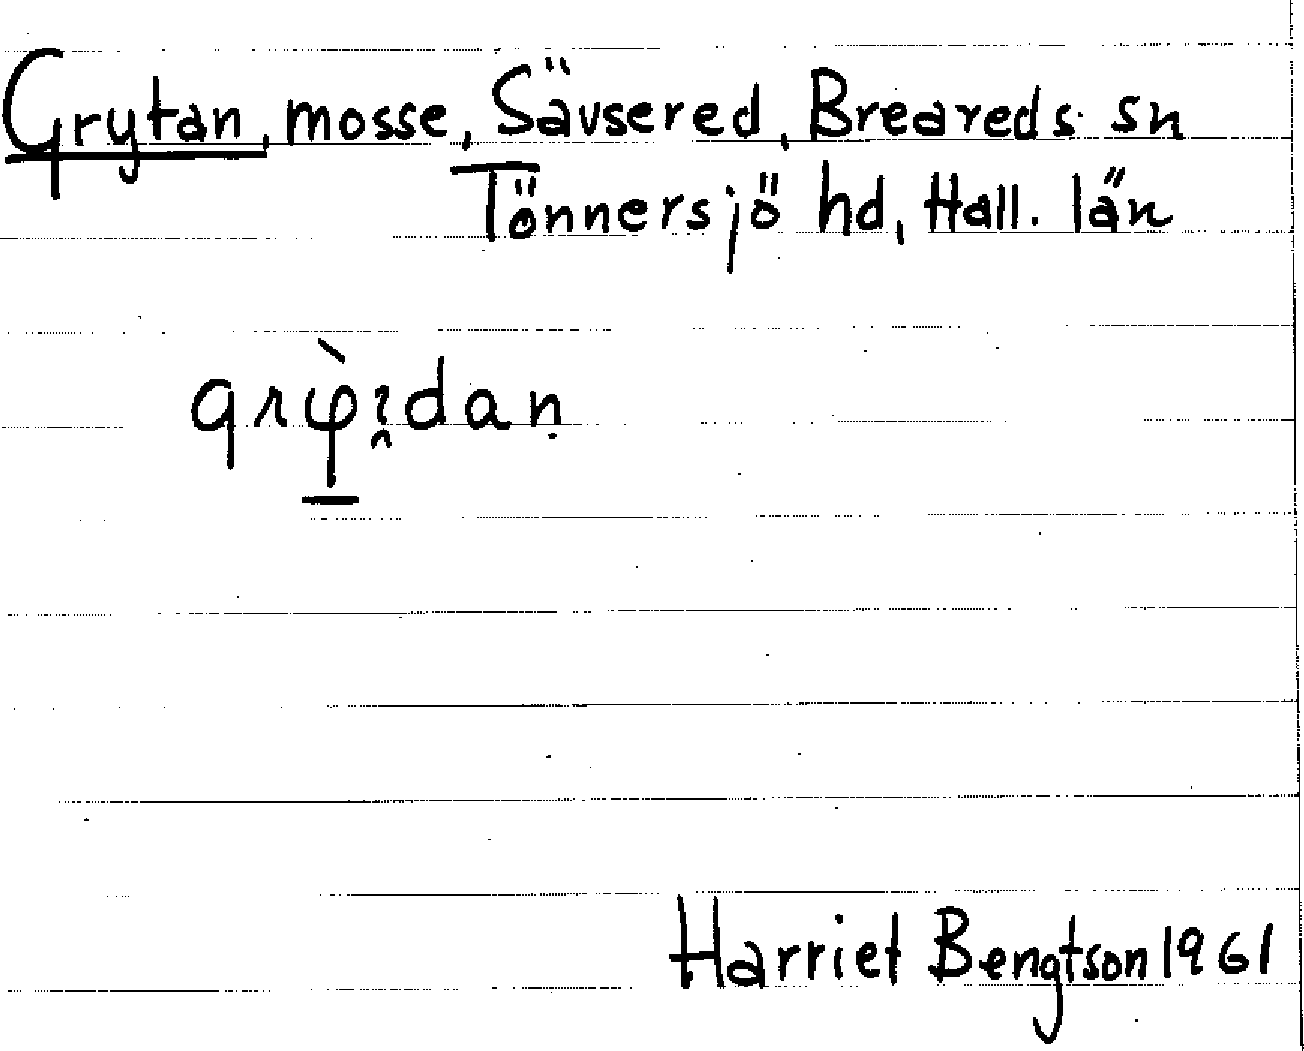 Grytan, mosse, Sävsered, Breareds sn
Tönnersjö hd, Hall. län
Harriet Bengtson 1961